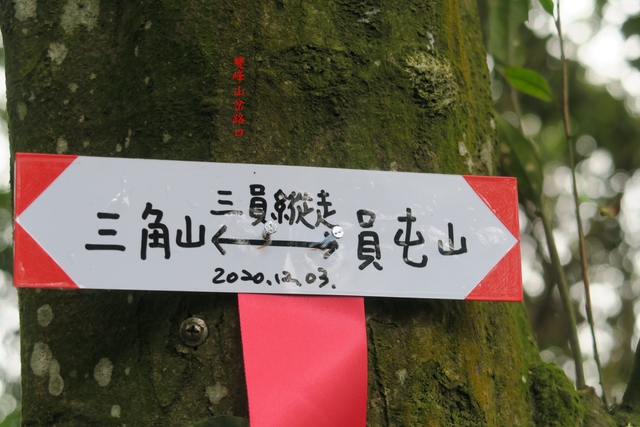 雙峰山岔路口
三員縱走
三角山 ←→ 員屯山
2020.12.03.